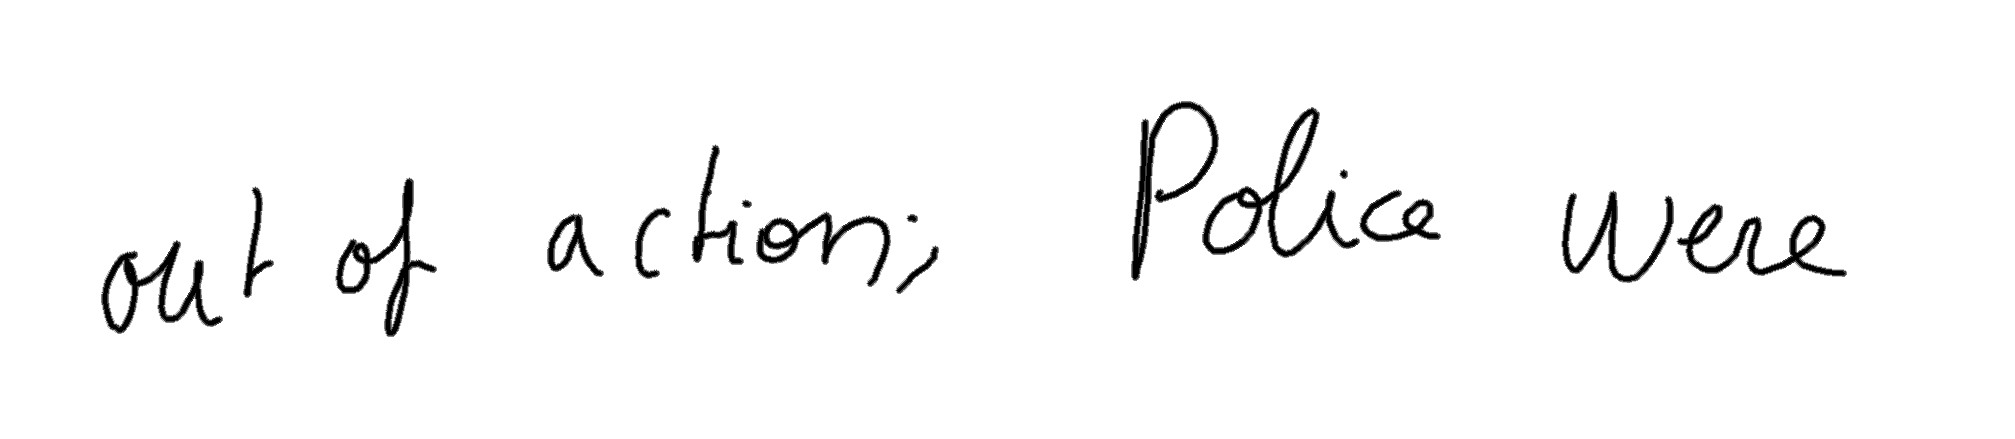 out of action; Police were